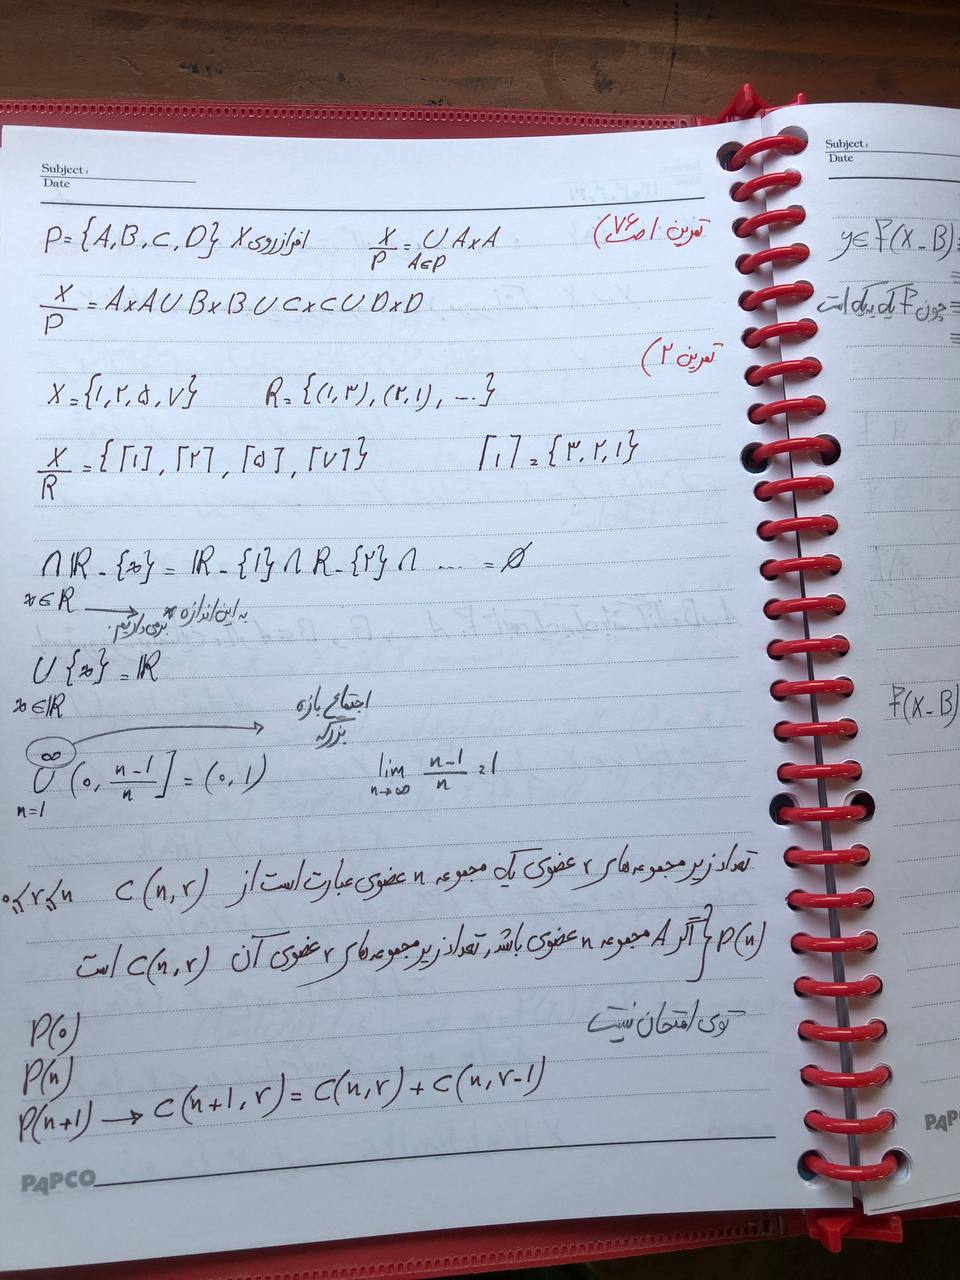 Subject:
Date
تمرین ۱ ص ۷۶)
P = {A, B, C, D} افراز روی X X/P = ∪ A×A
A∈P
X/P = A×A ∪ B×B ∪ C×C ∪ D×D
تمرین ۲)
X = {۱, ۲, ۵, ۷} R = {(۱,۳), (۲,۱), ...}
X/R = {[۱], [۲], [۵], [۷]} [۱] = {۳, ۲, ۱}
∩ ℝ - {x} = ℝ - {۱} ∩ ℝ - {۲} ∩ ... = ∅
x∈ℝ → به این اندازه x برمی‌داریم
∪ {x} = ℝ
x∈ℝ
اجتماع بازه
بزرگه
∞
∪ (0, n-1/n] = (0, 1) lim n-1/n = 1
n=1 n→∞
تعداد زیر مجموعه های r عضوی یک مجموعه n عضوی عبارت است از C(n,r) 0≤r≤n
P(n) { اگر A مجموعه n عضوی باشد, تعداد زیر مجموعه های r عضوی آن C(n,r) است
توی امتحان نیست
P(0)
P(n)
P(n+1) → C(n+1, r) = C(n, r) + C(n, r-1)
PAPCO
Subject:
Date
y∈f(X-B)
چون f یک به یک است
f(X-B)